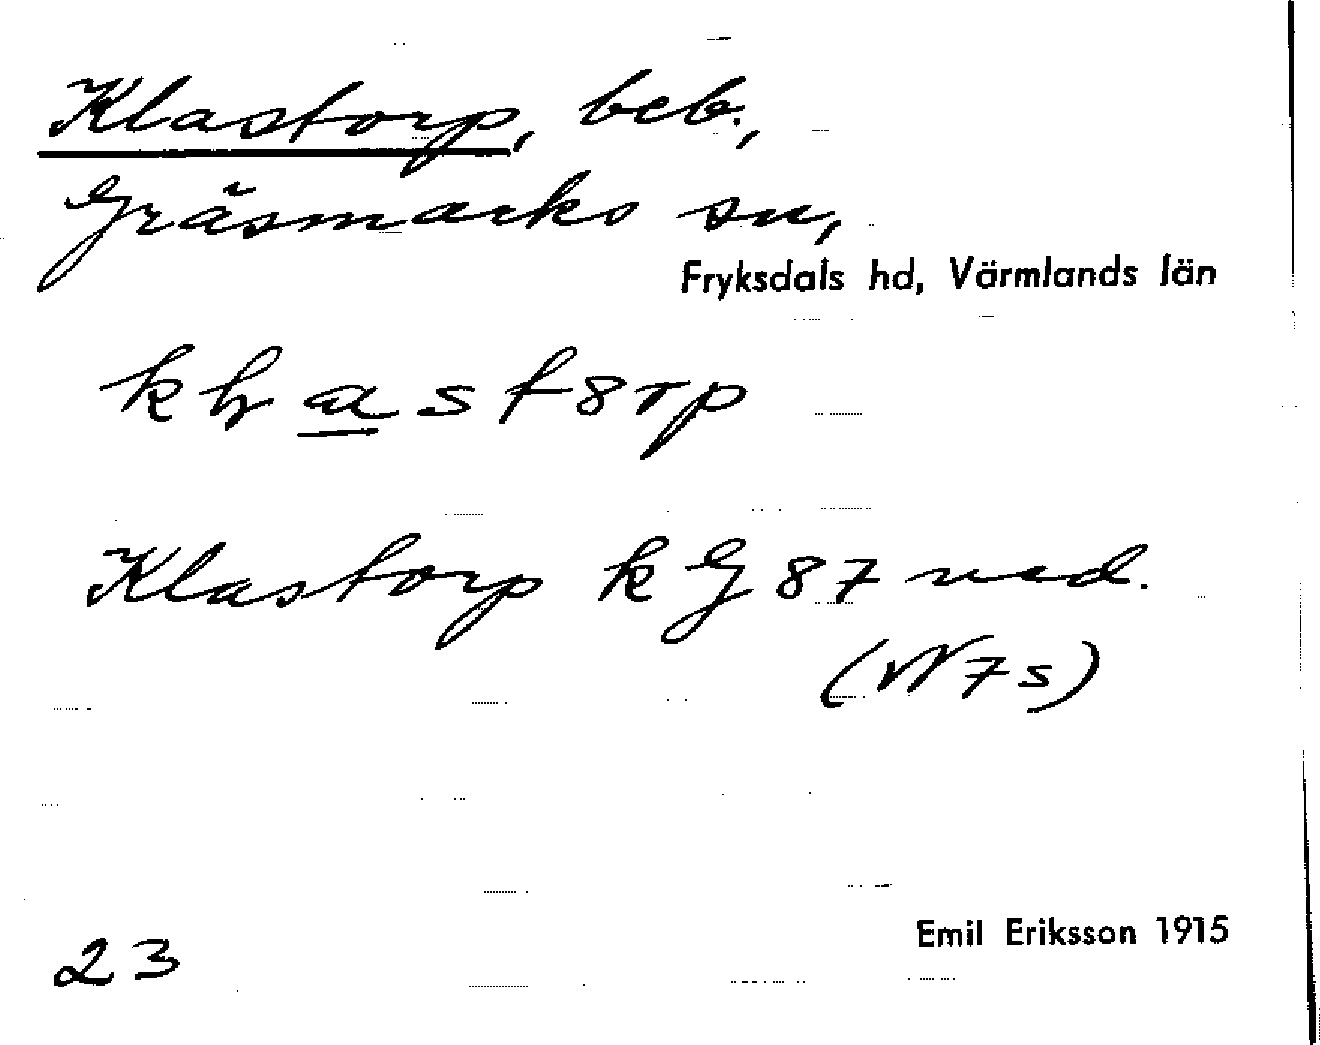 Klastorp, beb.,
Gräsmarks sn,
Fryksdals hd, Värmlands län
Klastorp k G 87 ned.
(W 7 s)
23
Emil Eriksson 1915